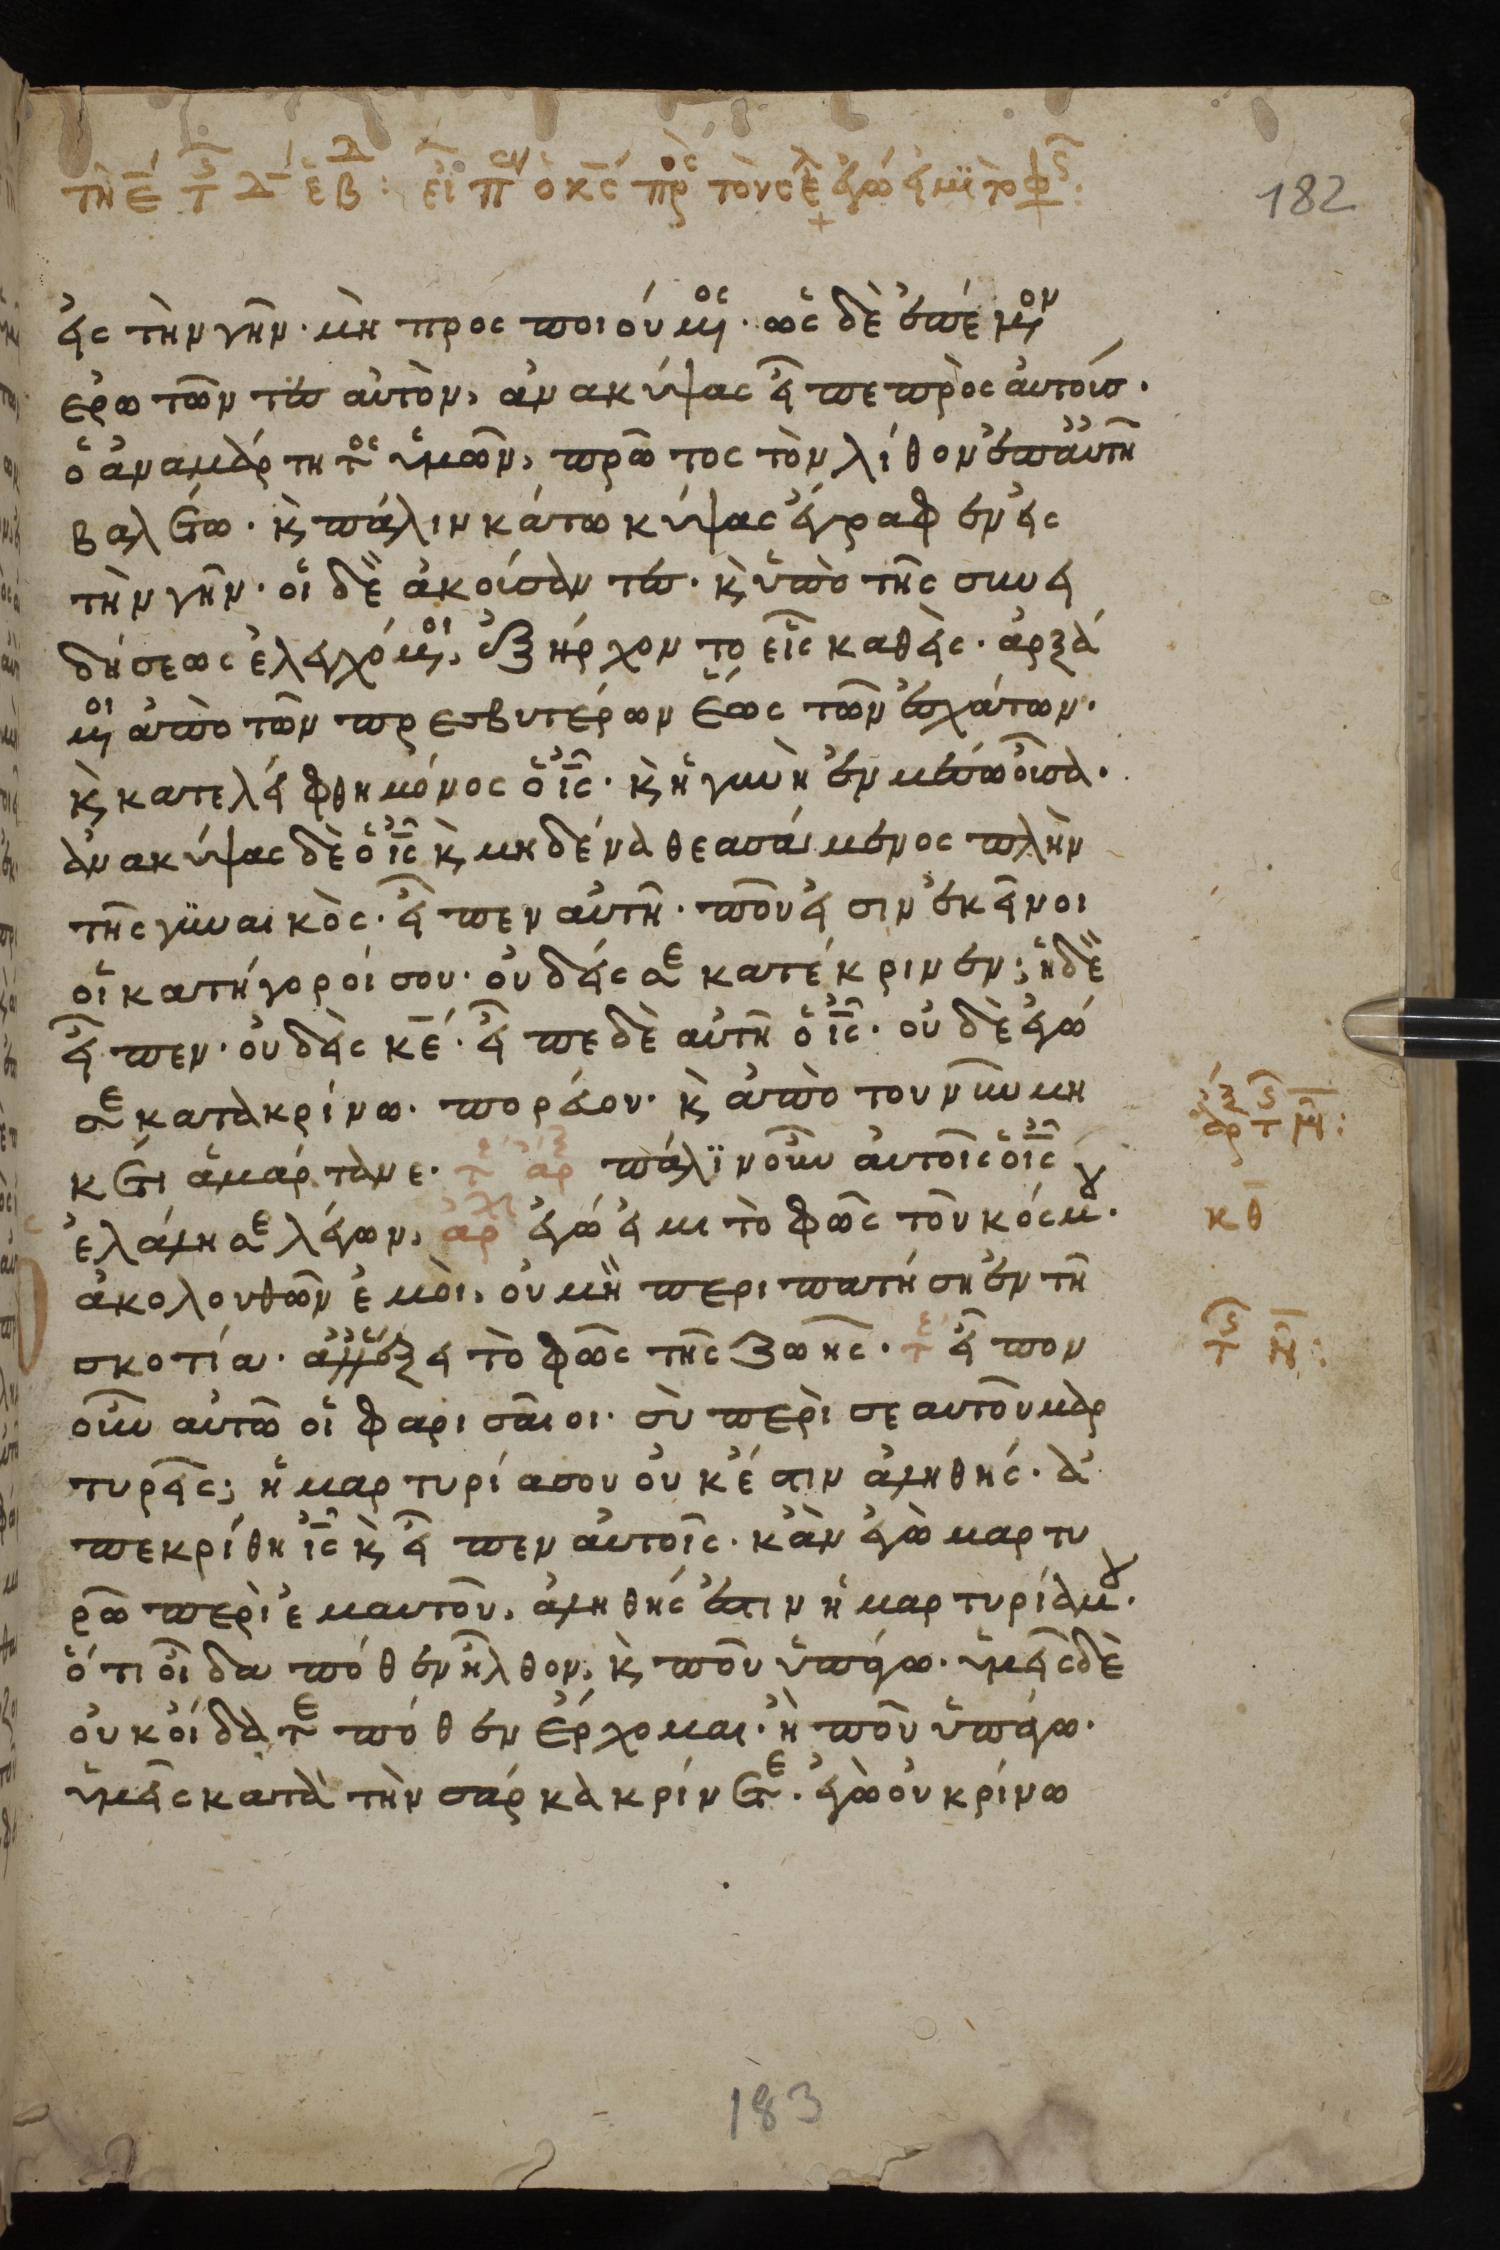 τῇ ε τῆς δ ἑβ: εἶπεν ὁ κς πρὸς τοὺς ἐλ ἐγώ εἰμϊ τὸ φῶς:
182
εἰς τὴν γῆν· μὴ προσποιούμενος· ὡς δὲ ἐπέμενον
ερωτῶντες αὐτὸν, ἀνακύψας εἶπε πρὸς αὐτούς·
ὁ ἀναμάρτητος ὑμῶν, πρῶτος τὸν λίθον ἐπ αὐτῆ
βαλέτω· κ πάλιν κάτω κύψας ἔγραφεν εἰς
τὴν γῆν· οἱ δὲ ἀκούσαντες· κ ὑπὸ τῆς συνει
δήσεως ἐλεγχόμενοι, ἐξήρχοντο εἷς καθεὶς· ἀρξά
μενοι ἀπὸ τῶν πρεσβυτέρων ἕως τῶν ἐσχάτων·
κ κατελείφθη μόνος ὁ ις· κ ἡ γυνὴ ἐν μέσω οὖσα·
ἀνακύψας δὲ ὁ ις κ μηδένα θεασάμενος πλὴν
τῆς γυναικὸς· εἶπεν αὐτῆ· ποῦ εἰσιν ἐκεῖνοι
οἱ κατήγοροί σου· οὐδείς σε κατέκρινεν; ἡ δὲ
εἶπεν· οὐδεὶς κε· εἶπε δὲ αὐτῆ ὁ ις· οὐδὲ ἐγώ
σε κατακρίνω· πορεύου· κ ἀπὸ του νῦν μη
κέτι ἁμάρτανε· τε αρξ πάλϊν οὖν αὐτοῖς ὁ ις
ἐλάλησε λέγων, αρχ ἐγώ εἰμι τὸ φῶς τοῦ κόσμου·
ἀκολουθῶν ἐμὸι, οὐ μὴ περιπατήση ἐν τῆ
σκοτία· ἀλλ ἕξει τὸ φῶς τῆς ζωῆς· τε εἶπον
οὖν αὐτῶ οἱ φαρισαῖοι· σὺ περὶ σεαυτοῦ μαρ
τυρεῖς; ἡ μαρτυρία σου οὐκ ἔστιν ἀληθής· ἀ
πεκρίθη ις κ εἶπεν αὐτοῖς· κἀν ἐγὼ μαρτυ
ρῶ περὶ ἐμαυτοῦ, ἀληθής ἐστιν ἡ μαρτυρία μου·
ὅτι οἶδα πόθεν ἦλθον, κ ποῦ ὑπάγω· ὑμεῖς δὲ
οὐκ οἴδατε πόθεν ἔρχομαι· ἢ ποῦ ὑπάγω·
ὑμεῖς κατὰ τὴν σάρκα κρίνετε· ἐγὼ οὐ κρίνω
κθ
183